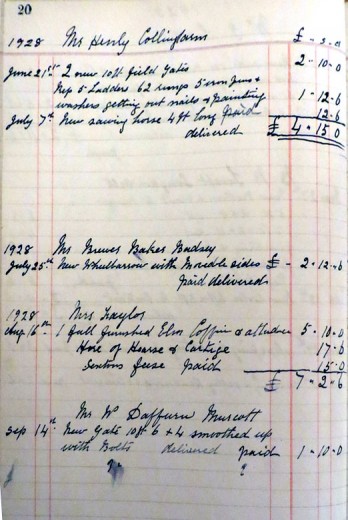 20
1928 Mr Henly Collingfarm £ - s - D
June 21st 2 new 10ft field Gates 2 - 10 - 0
Rep 5 Ladders 62 rungs 5 iron pins &
washers getting out nails & painting 1 - 12 - 6
July 7th New sawing horse 4ft long paid 12 - 6
delivered £ 4 - 15 - 0
1928 Mr Baker Badsey
July 25th New Wheelbarrow with Movable sides £ - 2 - 12 - 6
paid delivered
1928 Mrs Taylor
Aug 16th 1 full furnished Elm Coffin & attendce 5 - 10 - 0
Hire of Hearse & Cartige 17 - 6
Sextons fees paid 15 - 0
£ 7 - 2 - 6
Mr Wm Daffurn Murcott
Sep 14th New Gate 10ft 6 × 4 smoothed up
with Bolts delivered paid 1 - 10 - 0